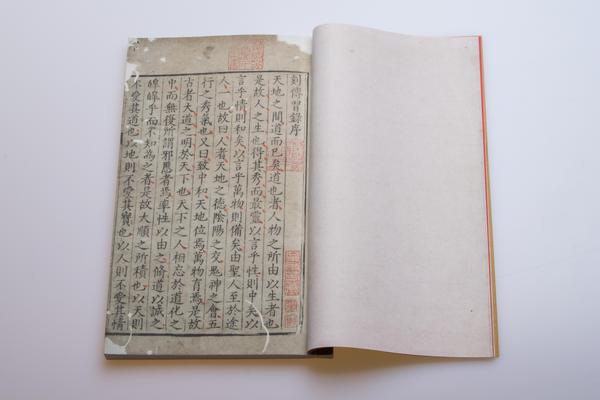 刻傳習錄序
天地之間道而已矣道也者人物之所由以生者也
是故人之生也得其秀而最靈以言乎性則中矣以
言乎情則和矣以言乎萬物則備矣由聖人至於途
人一也故曰人者天地之德陰陽之交鬼神之會五
行之秀氣也又曰致中和天地位焉萬物育焉是故
古者大道之明於天下也天下之人相忘於道化之
中而無復所謂邪慝者焉率性以由之脩道以誠之
皞皞乎而不知為之者是故大順之所積也以天則
不愛其道也以地則不愛其寶也以人則不愛其情